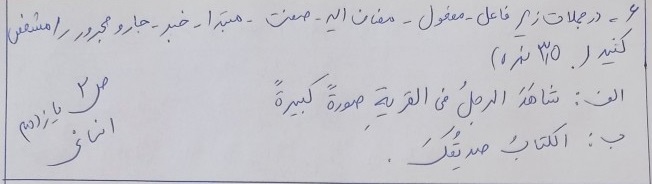 ۶ - در جملات زیر فاعل - مفعول - مضاف الیه - صفت - مبتدا - خبر - جار و مجرور را مشخص
کنید (۳٫۵ نمره)
الف: شاهَدَ الرجلُ فی القریةِ صورةً کبیرةً
ب: الکتابُ صدیقُكَ .
ص ۲ یازدهم
انسانی